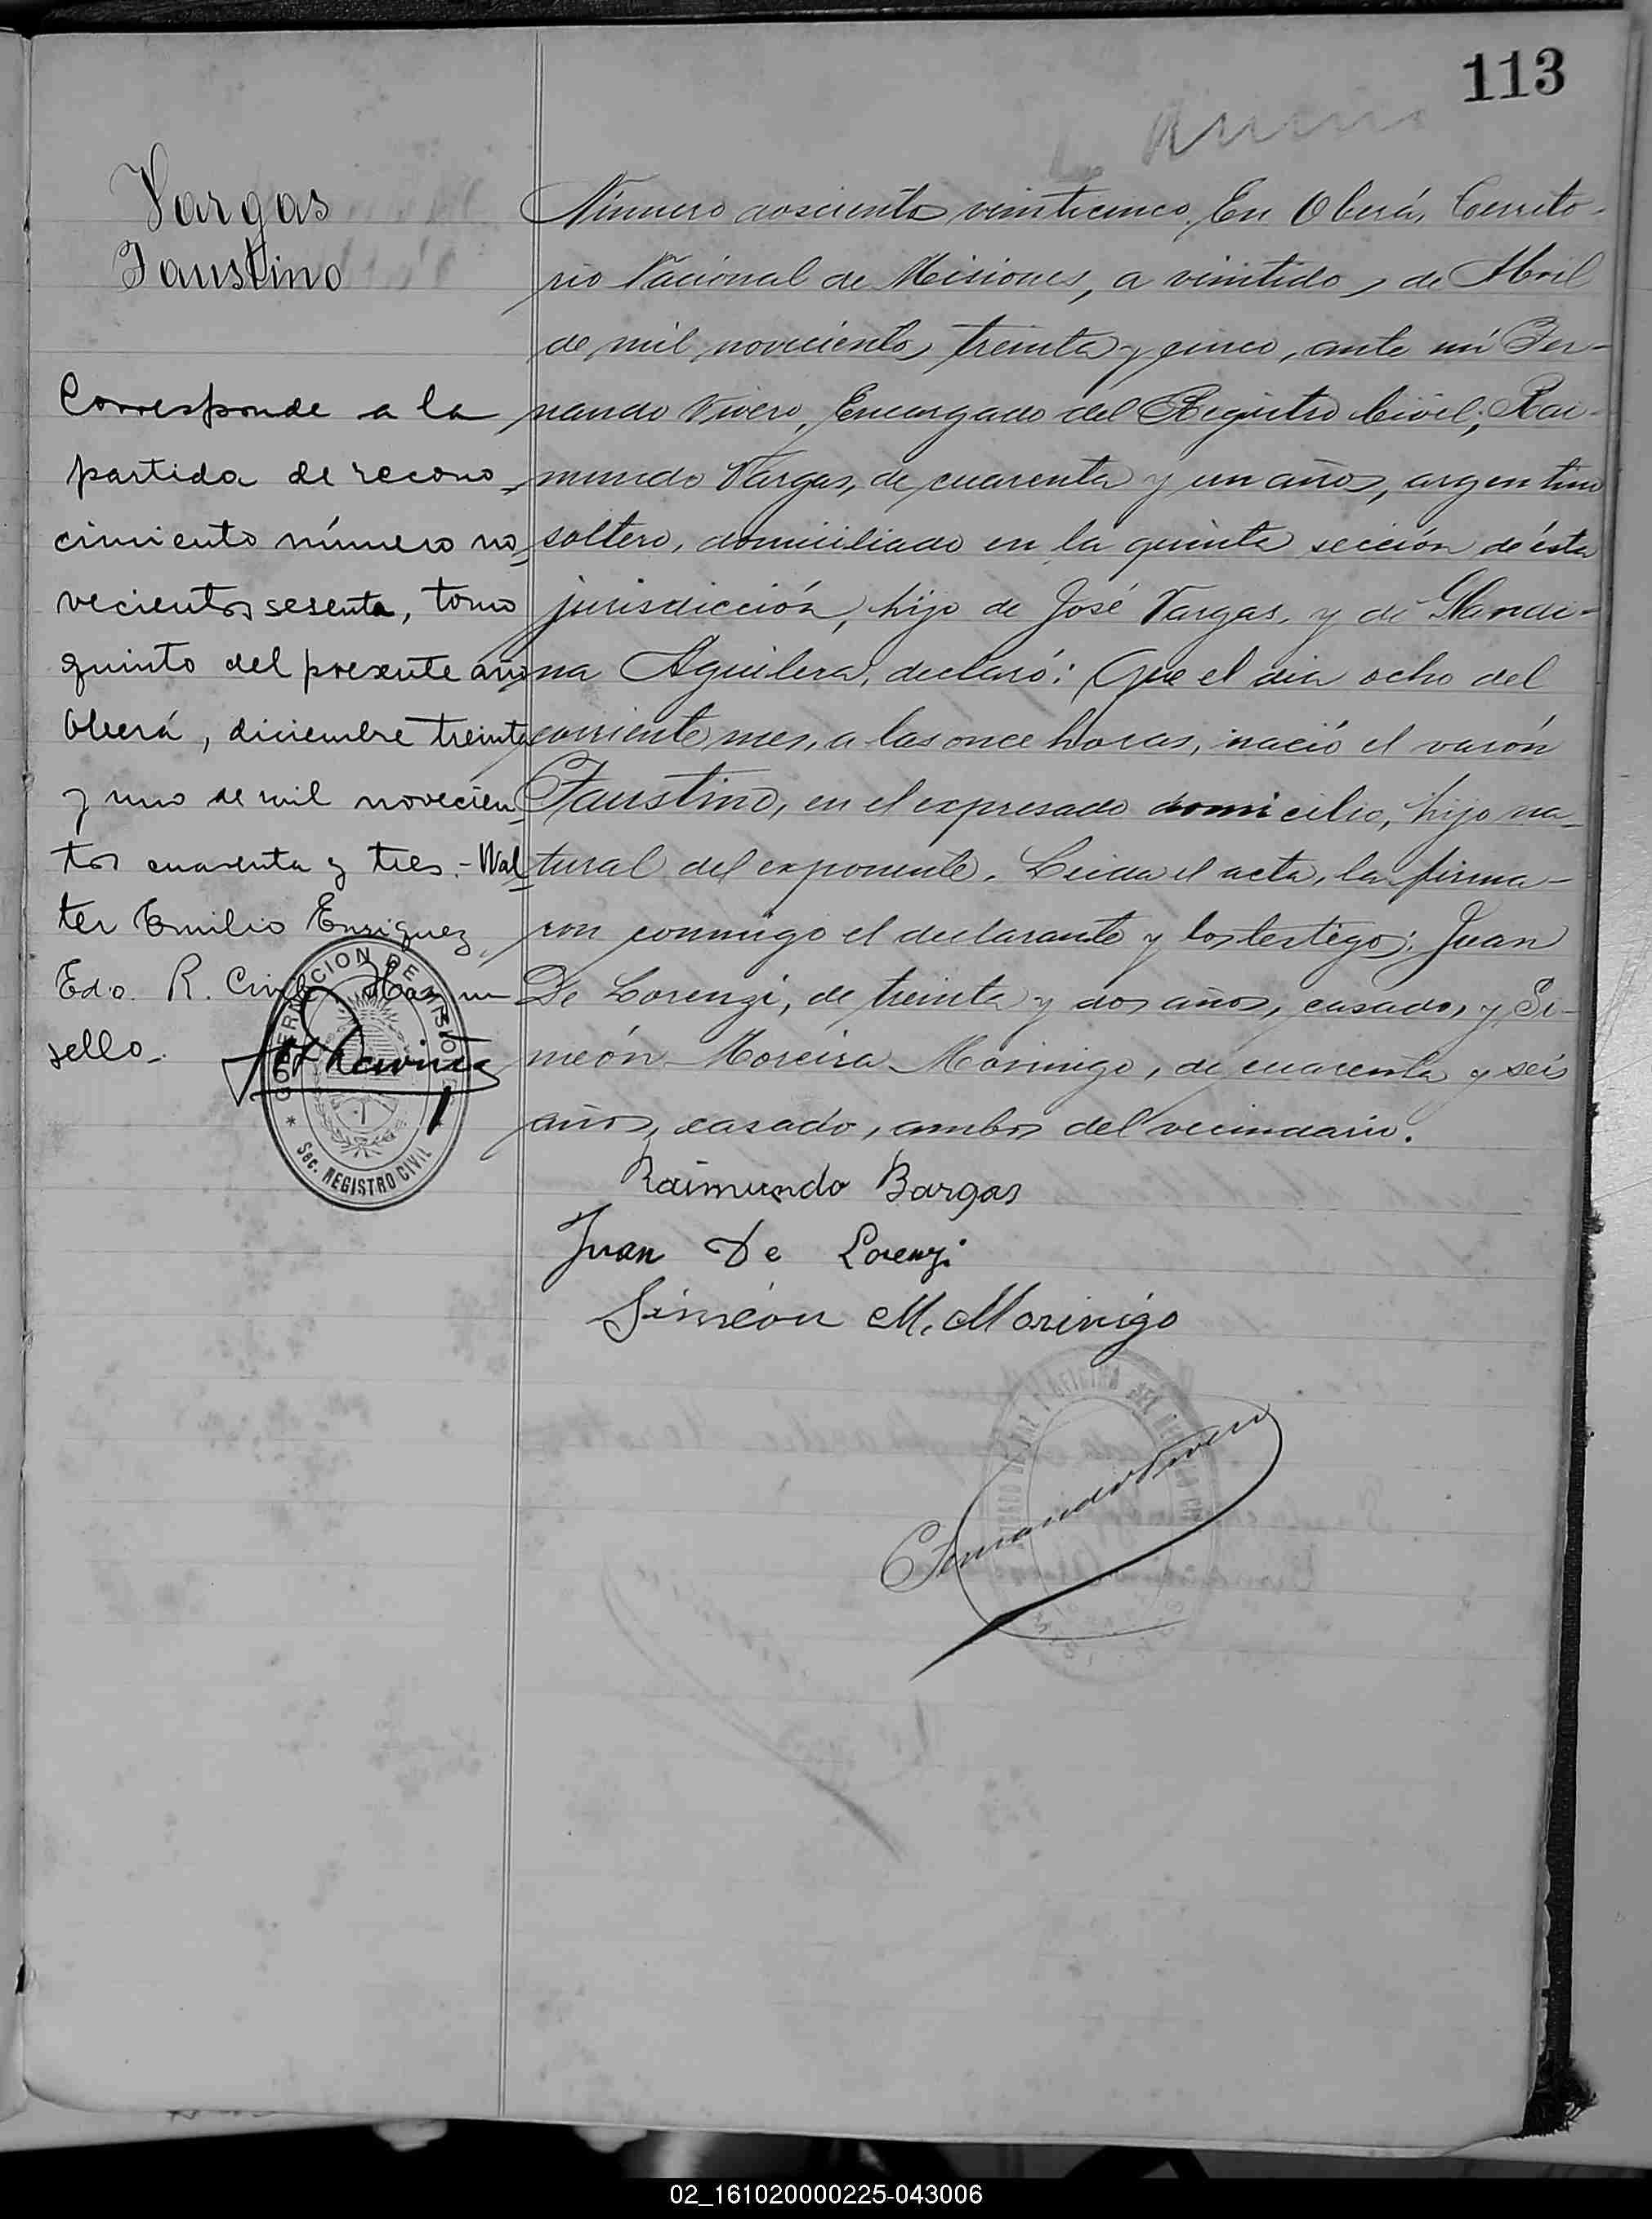 113
Vargas
Faustino
Corresponde a la
partida de recono_
cimiento número no_
vecientos sesenta, tomo
quinto del presente año
Oberá, diciembre treinta
y uno de mil novecien_
tos cuarenta y tres.- Wal_
ter Emilio Enriquez
Edo. R. Civil Hay un
sello_.
GOBERNACION DE MISIONES
* Sec. REGISTRO CIVIL *
Número doscientos veinticinco. En Oberá, Territo-
rio Nacional de Misiones, a veintidos, de Abril
de mil novecientos treinta y cinco, ante mí Fer-
nando Vivero, Encargado del Registro Civil; Rai-
mundo Vargas, de cuarenta y un años, argentino
soltero, domiciliado en la quinta sección de ésta
jurisdicción, hijo de José Vargas, y de
na Aguilera, declaró: Que el dia ocho del
corriente mes, a las once horas, nació el varón
Faustino, en el expresado domicilio, hijo na_
tural del exponente. Leida el acta, la firma-
ron conmigo el declarante y los testigos: Juan
De Lorenzi, de treinta y dos años, casado, y Si-
meón Moreira Morinigo, de cuarenta y seis
años, casado, ambos del vecindario.
Raimundo Bargas
Juan De Lorenzi
Simeón M. Morinigo
Fernando Vivero
02_161020000225-043006